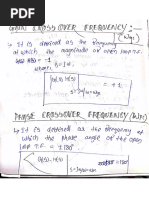 GAIN CROSSOVER FREQUENCY :-
(ωg)
→ It is defined as the frequency
at which the magnitude of open loop T.F.
= 1
|G(s).H(s)| = 1
S=jωg
PHASE CROSSOVER FREQUENCY (ωpc)
→ It is defined as the frequency
at which the phase angle of open
loop T.F. = ±180°
G(s).H(s) = ±180°